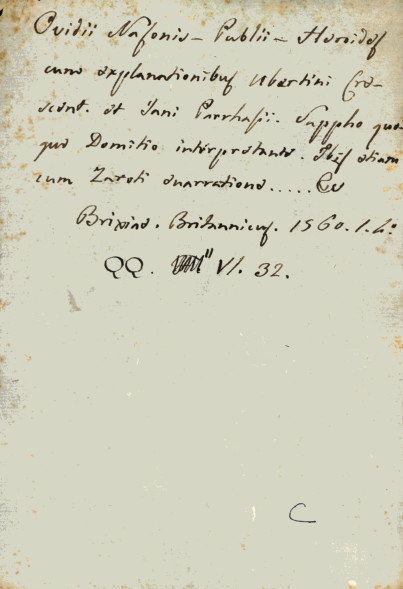 Ovidii Nasonis - Publii - Heroides
cum explanationibus Ubertini Cre-
scent. et Jani Parrhasii. Sappho quo-
que Domitio interprotante. Ibis etiam
cum Zaroti enarratione..... Ex
Brixiae. Britannicus. 1560. 1. 4:o
QQ. VI. 32.
C